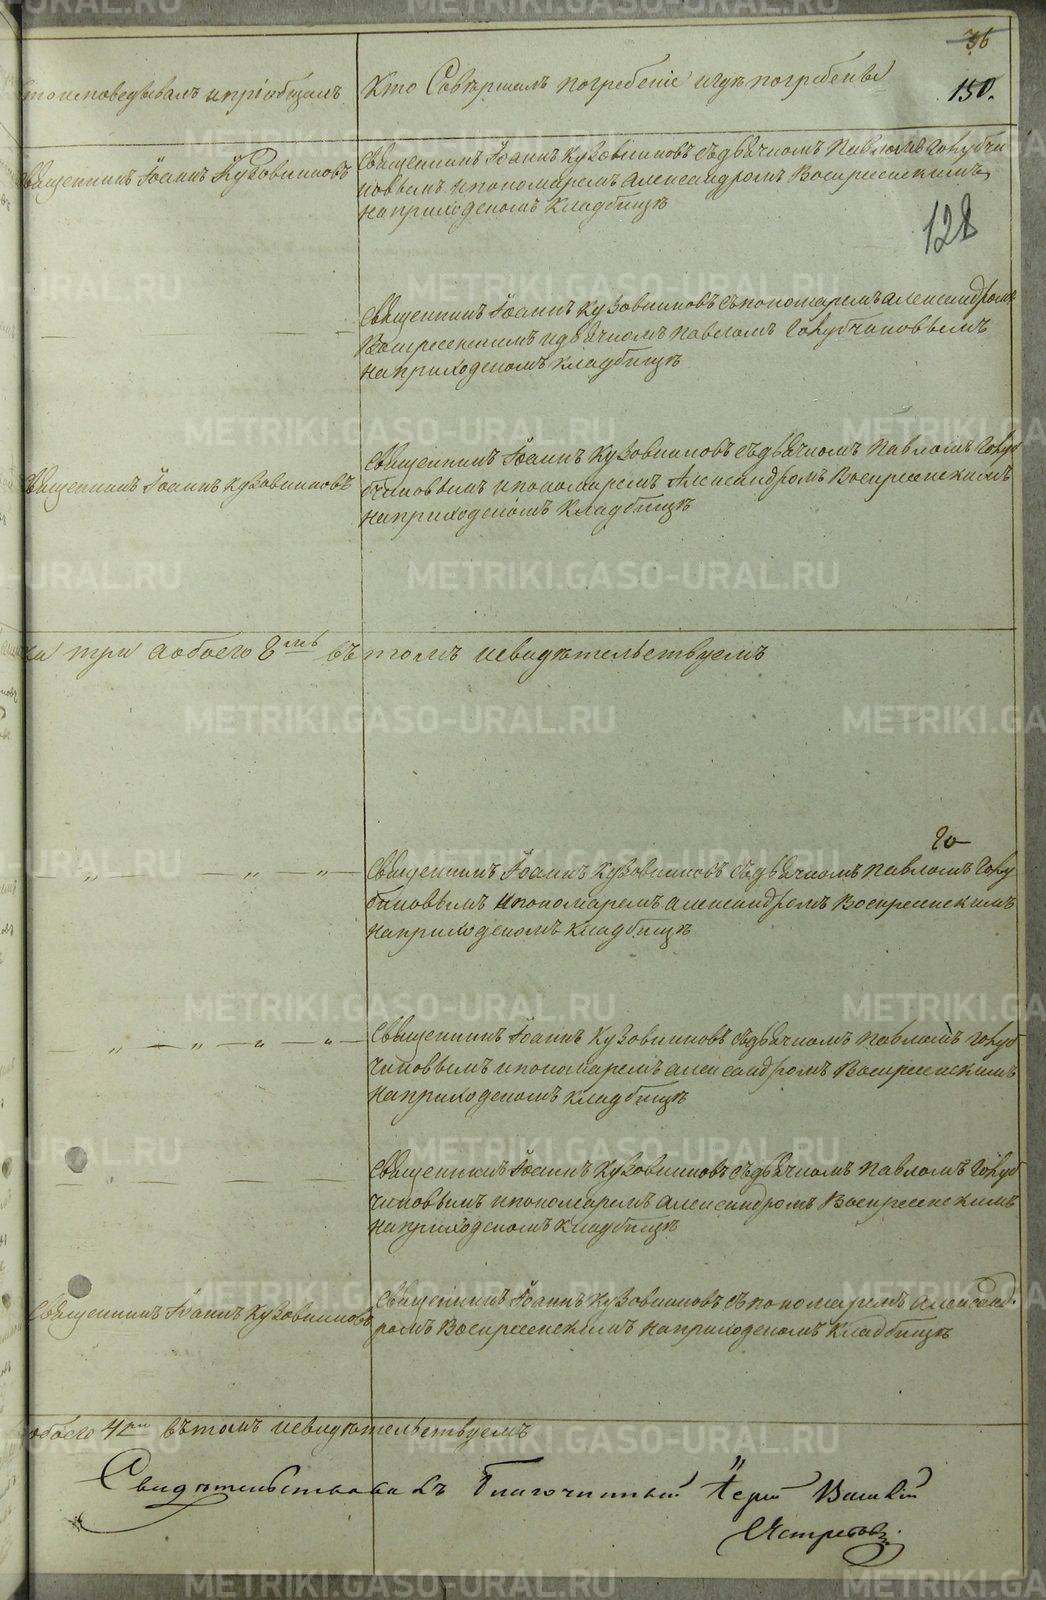 36
150.
Кто исповедывалъ и пріобщалъ
Кто Совершалъ погребеніе и гдѣ погребены
Священникъ Іоаннъ Кузовниковъ
Священникъ Іоаннъ Кузовниковъ съ дьячкомъ Павломъ Голубчи
ковымъ и пономаремъ Александромъ Воскресенскимъ
на приходскомъ Кладбищѣ
128
Священникъ Іоаннъ Кузовниковъ съ пономаремъ александромъ
Воскресенскимъ и дьячкомъ павломъ Голубчиковымъ
на приходскомъ кладбищѣ
Священникъ Іоаннъ Кузовниковъ
Священникъ Іоаннъ Кузовниковъ съ дьячкомъ Павломъ Голуб
чиковымъ и пономаремъ Александромъ Воскресенскимъ
на приходскомъ Кладбищѣ
три а обоего 8мь въ томъ и свидѣтельствуемъ
Го
Священникъ Іоаннъ Кузовниковъ съ дьячкомъ павломъ Голу
бчиковымъ и пономаремъ александромъ Воскресенскимъ
на приходскомъ кладбищѣ
Священникъ Іоаннъ Кузовниковъ съ дьячкомъ павломъ Голуб
чиковымъ и пономаремъ александромъ Воскресенскимъ
на приходскомъ кладбищѣ
Священникъ Іоаннъ Кузовниковъ съ дьячкомъ павломъ Голуб
чиковымъ и пономаремъ александромъ Воскресенскимъ
на приходскомъ кладбищѣ
Священникъ Іоаннъ Кузовниковъ
Священникъ Іоаннъ Кузовниковъ съ пономаремъ Александ
ромъ Воскресенскимъ на приходскомъ Кладбищѣ
обоего 4ри въ томъ и свидѣтельствуемъ
Свидѣтельствовалъ Благочинный Іерей Василій
Ястребовъ.
METRIKI.GASO-URAL.RU